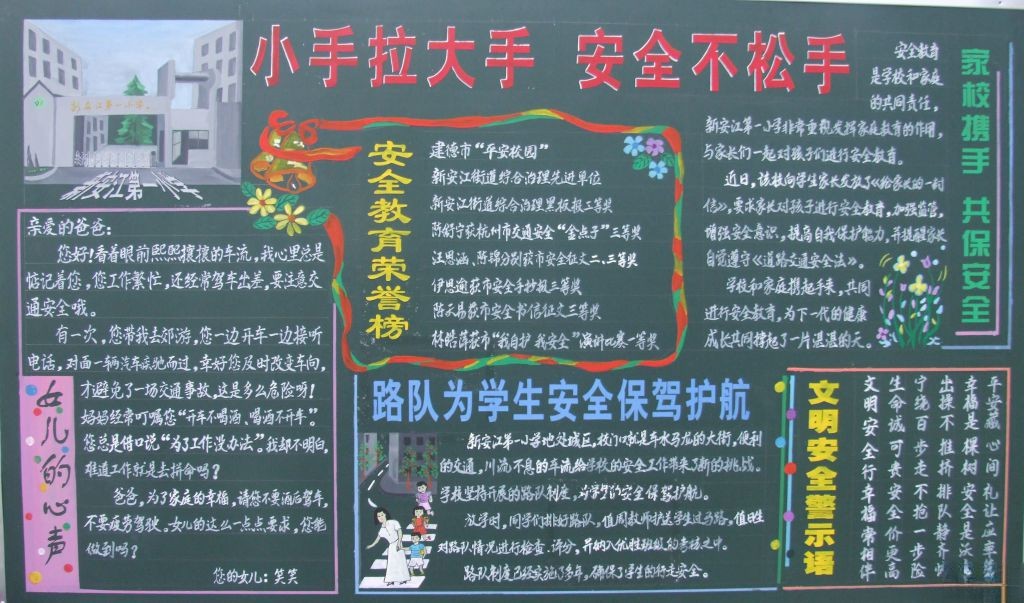 小手拉大手 安全不松手
新安江第一小学
新安江第一小学
亲爱的爸爸:
您好!看着眼前熙熙攘攘的车流,我心里总是
惦记着您,您工作繁忙,还经常驾车出差,要注意交
通安全哦。
有一次,您带我去郊游,您一边开车一边接听
电话,对面一辆汽车疾驰而过,幸好您及时改变车向,
才避免了一场交通事故,这是多么危险呀!
妈妈经常叮嘱您“开车不喝酒、喝酒不开车”。
您总是借口说“为了工作没办法”。我却不明白,
难道工作就是去拼命吗?
爸爸,为了家庭的幸福,请您不要酒后驾车,
不要疲劳驾驶。女儿的这么一点点要求,您能
做到吗?
您的女儿:笑笑
女儿的心声
安全教育荣誉榜
建德市“平安校园”
新安江街道综合治理先进单位
新安江街道综合治理黑板报二等奖
陈舒宁获杭州市交通安全“金点子”三等奖
汪恩涵、陈锦分别获市安全征文二、三等奖
伊恩逾获市安全手抄报三等奖
陈云易获市安全书信征文三等奖
林皓萍获市“我自护 我安全”演讲比赛一等奖
安全教育
是学校和家庭
的共同责任,
新安江第一小学非常重视发挥家庭教育的作用,
与家长们一起对孩子们进行安全教育。
近日,该校向学生家长发放了《给家长的一封
信》,要求家长对孩子进行安全教育,加强监管,
增强安全意识,提高自我保护能力,并提醒家长
自觉遵守《道路交通安全法》。
学校和家庭携起手来,共同
进行安全教育,为下一代的健康
成长共同撑起了一片湛湛的天。
家校携手 共保安全
路队为学生安全保驾护航
新安江第一小学地处城区,校门口就是车水马龙的大街,便利
的交通,川流不息的车流给学校的安全工作带来了新的挑战。
学校坚持开展的路队制度,为学生的安全保驾护航。
放学时,同学们排好路队,值周教师护送学生过马路,值日生
对路队情况进行检查、评分,并纳入优胜班级的考核之中。
路队制度已经实施了多年,确保了学生的行走安全。
文明安全警示语
平安藏心间 礼让应牢
幸福是棵树 安全是沃
出操不推挤 排队静齐
宁绕百步走 不抢一步险
生命诚可贵 安全价更高
文明安全行 幸福常相伴